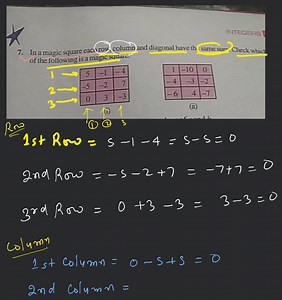 INTEGERS
7. In a magic square each row, column and diagonal have the same sum. Check which
of the following is a magic square.
1 → 5 -1 -4
2 → -5 -2 7
3 → 0 3 -3
1 -10 0
-4 -3 -2
-6 4 -7
① ② 3
(ii)
Row
1st Row = 5-1-4 = 5-5 = 0
2nd Row = -5-2+7 = -7+7 = 0
3rd Row = 0+3-3 = 3-3 = 0
Column
1st Column = 0-5+5 = 0
2nd Column =